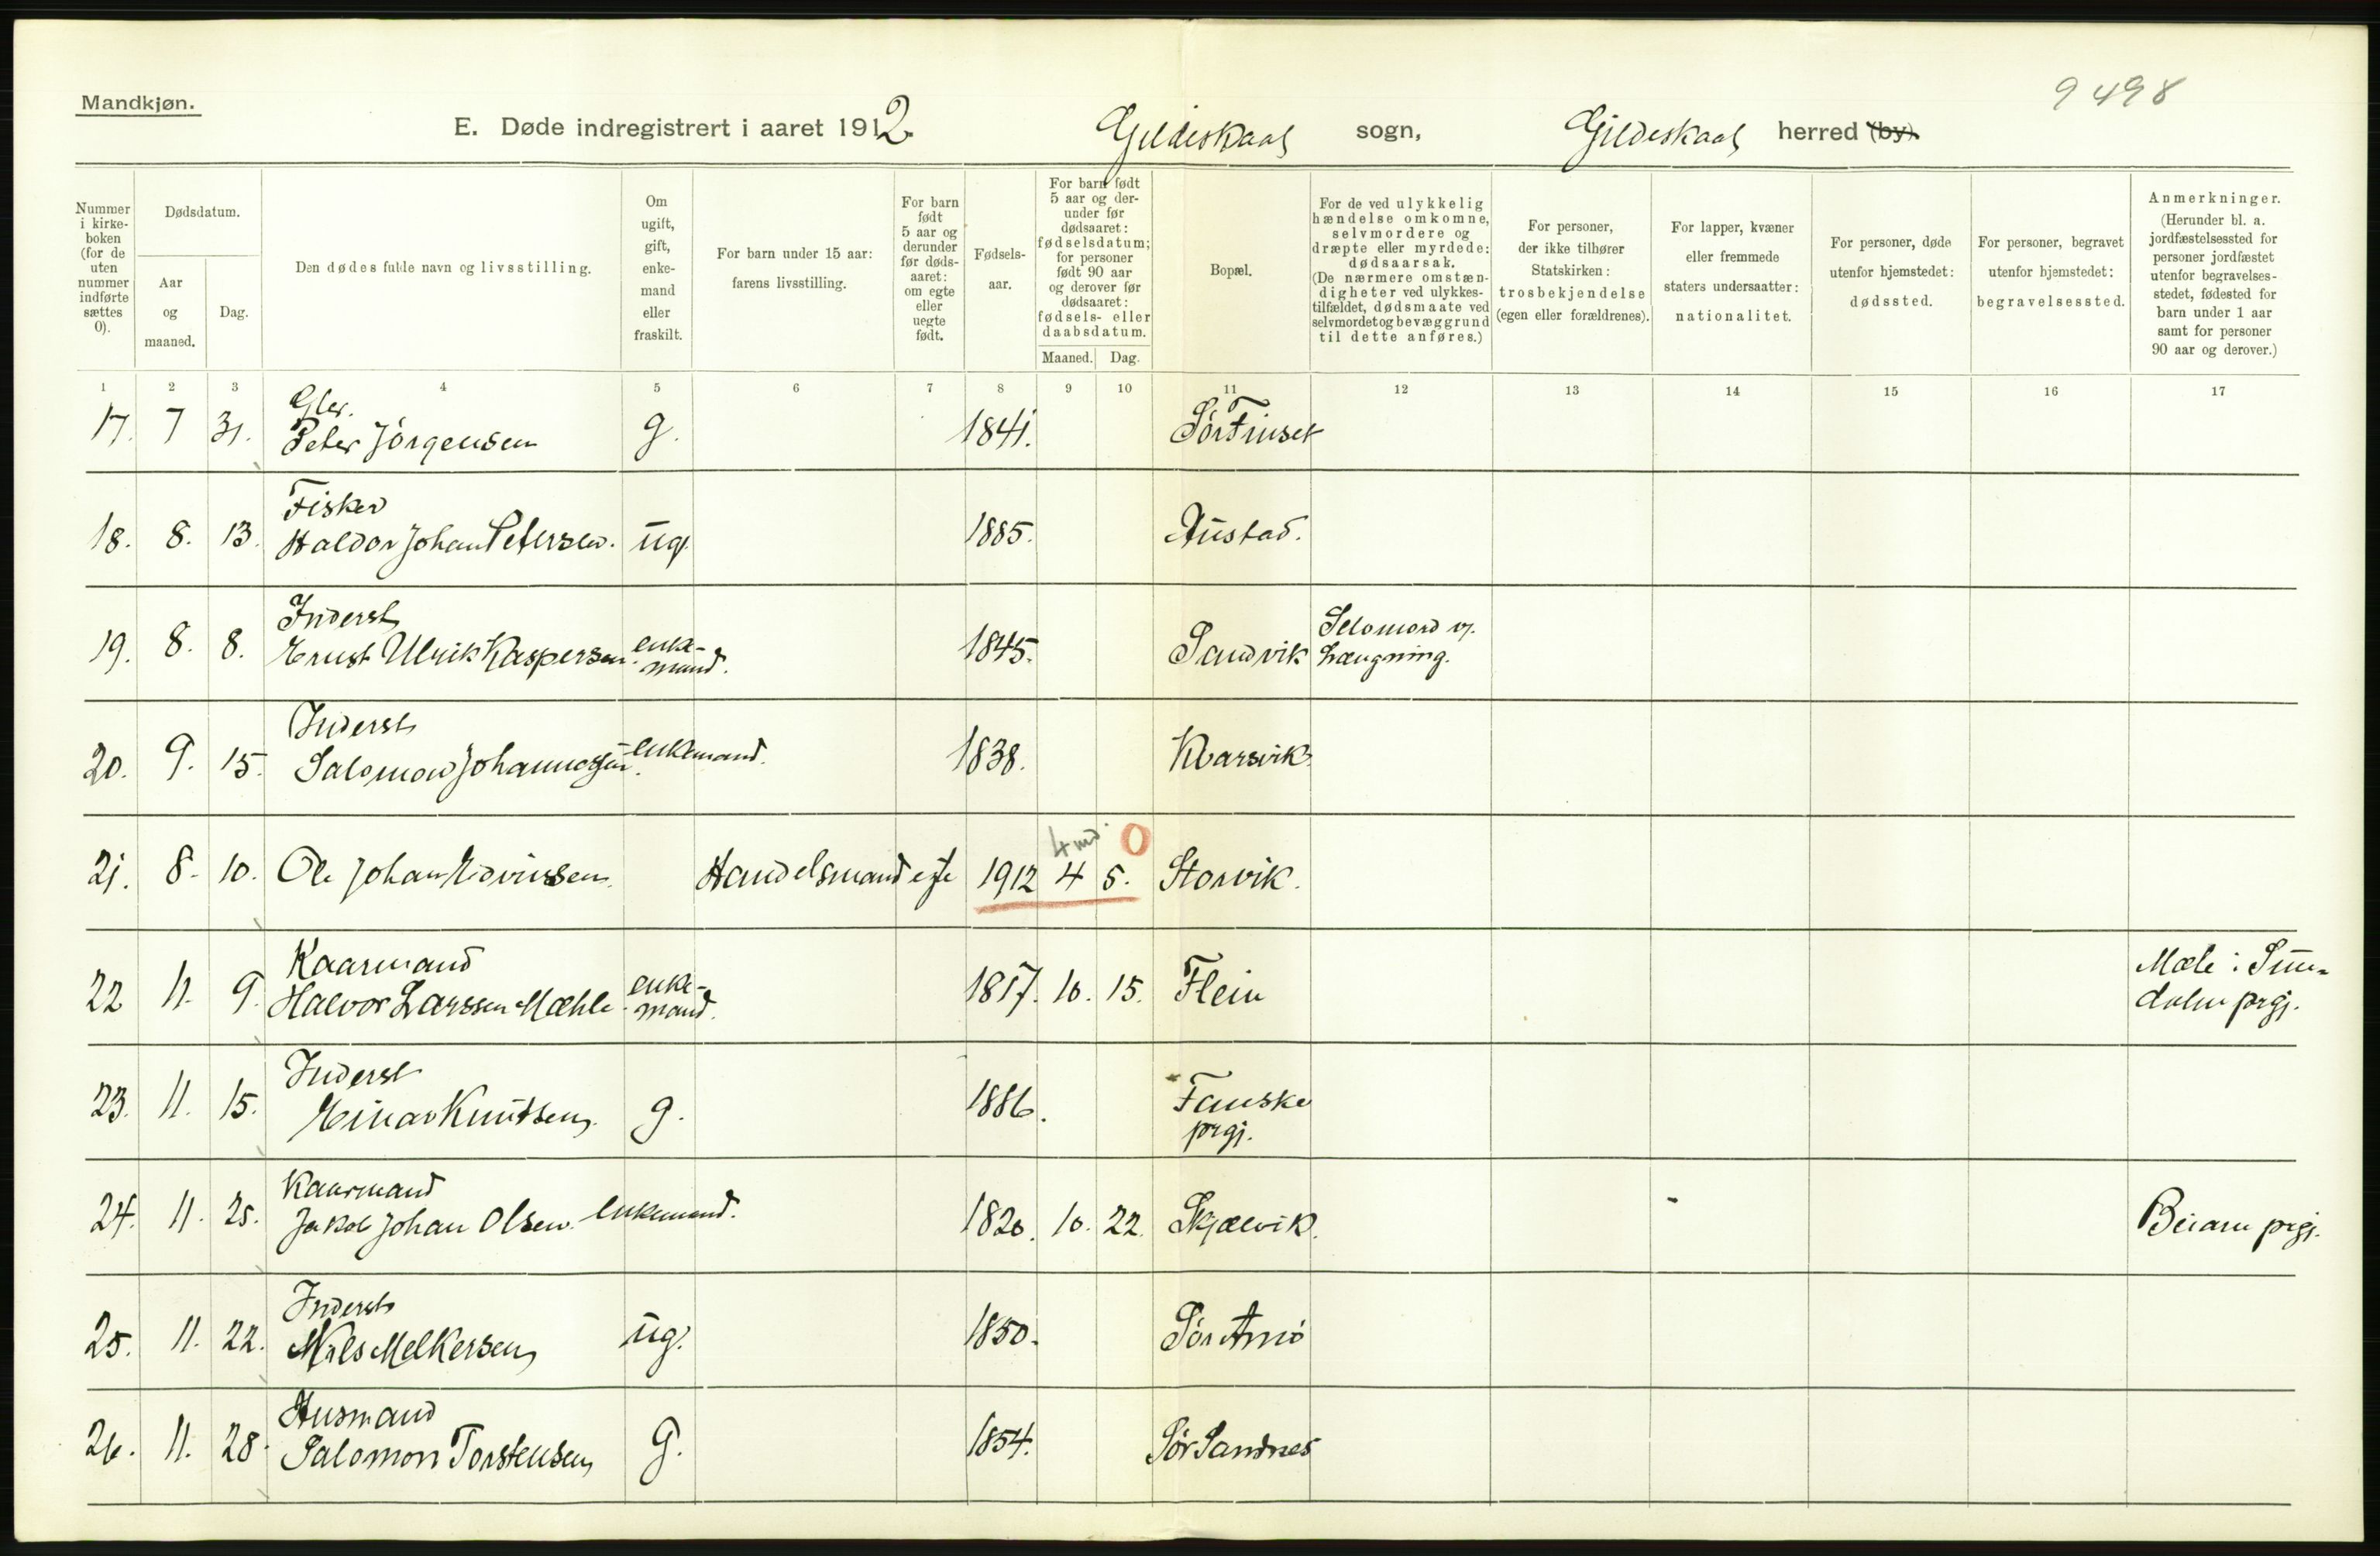 Mandkjøn.
9498
E. Døde indregistrert i aaret 1912. Gildeskaal sogn, Gildeskaal herred (by).
Nummer i kirke-boken (for de uten nummer indførte sættes 0).
Dødsdatum.
Aar og maaned.
Dag.
Den dødes fulde navn og livsstilling.
Om ugift, gift, enke-mand eller fraskilt.
For barn under 15 aar: farens livsstilling.
For barn født 5 aar og derunder før døds-aaret: om egte eller uegte født.
Fødsels-aar.
For barn født 5 aar og der-under før dødsaaret: fødselsdatum; for personer født 90 aar og derover før dødsaaret: fødsels- eller daabsdatum.
Maaned. Dag.
Bopæl.
For de ved ulykkelig hændelse omkomne, selvmordere og dræpte eller myrdede: dødsaarsak. (De nærmere omstæn-digheter ved ulykkes-tilfældet, dødsmaate ved selvmordet og bevæggrund til dette anføres.)
For personer, der ikke tilhører Statskirken: trosbekjendelse (egen eller forældrenes).
For lapper, kvæner eller fremmede staters undersaatter: nationalitet.
For personer, døde utenfor hjemstedet: dødssted.
For personer, begravet utenfor hjemstedet: begravelsessted.
Anmerkninger. (Herunder bl. a. jordfæstelsessted for personer jordfæstet utenfor begravelses-stedet, fødested for barn under 1 aar samt for personer 90 aar og derover.)
1 2 3 4 5 6 7 8 9 10 11 12 13 14 15 16 17
Gbr.
17. 7 31. Peter Jörgensen g. 1841. Sör Finset
Fisker
18. 8. 13. Haldor Johan Petersen. ug. 1885. Austad.
Inderst
19. 8. 8. Ernst Ulrik Kaspersen enke-mand. 1845. Sandvik Selvmord v. hængning.
Inderst
20. 9. 15. Salomon Johannessen. enkemand. 1838. Kvarsvik
4 md. 0
21. 8. 10. Ole Johan Edvinssen. Handelsmand egte 1912 4 5. Storvik.
Kaarmand
22 11. 9. Halvor Larssen Mæhle enke-mand. 1817. 10. 15. Flein Mæle i Sun-dalen prgj.
Inderst
23. 11. 15. Einar Knutsen g. 1886. Fauske prgj.
Kaarmand
24. 11. 25. Jakob Johan Olsen. enkemand. 1820. 10. 22. Skjælvik. Beiarn prgj.
Inderst
25. 11. 22. Nils Melkersen ug. 1850. Sör Arnö
Husmand
26. 11. 28. Salomon Torstensen g. 1854. Sör Sandnes